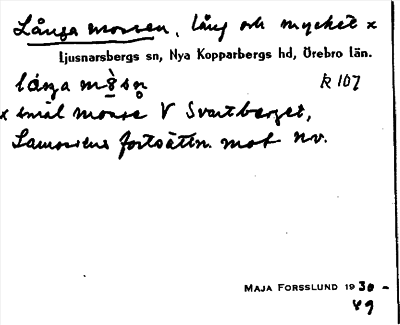 Långa mossen, lång och mycket x
Ljusnarsbergs sn, Nya Kopparbergs hd, Örebro län.
lánga mòsn̥ R 107
x smal mosse V Svartberget,
fortsättn. mot nv.
MAJA FORSSLUND 1930-
49